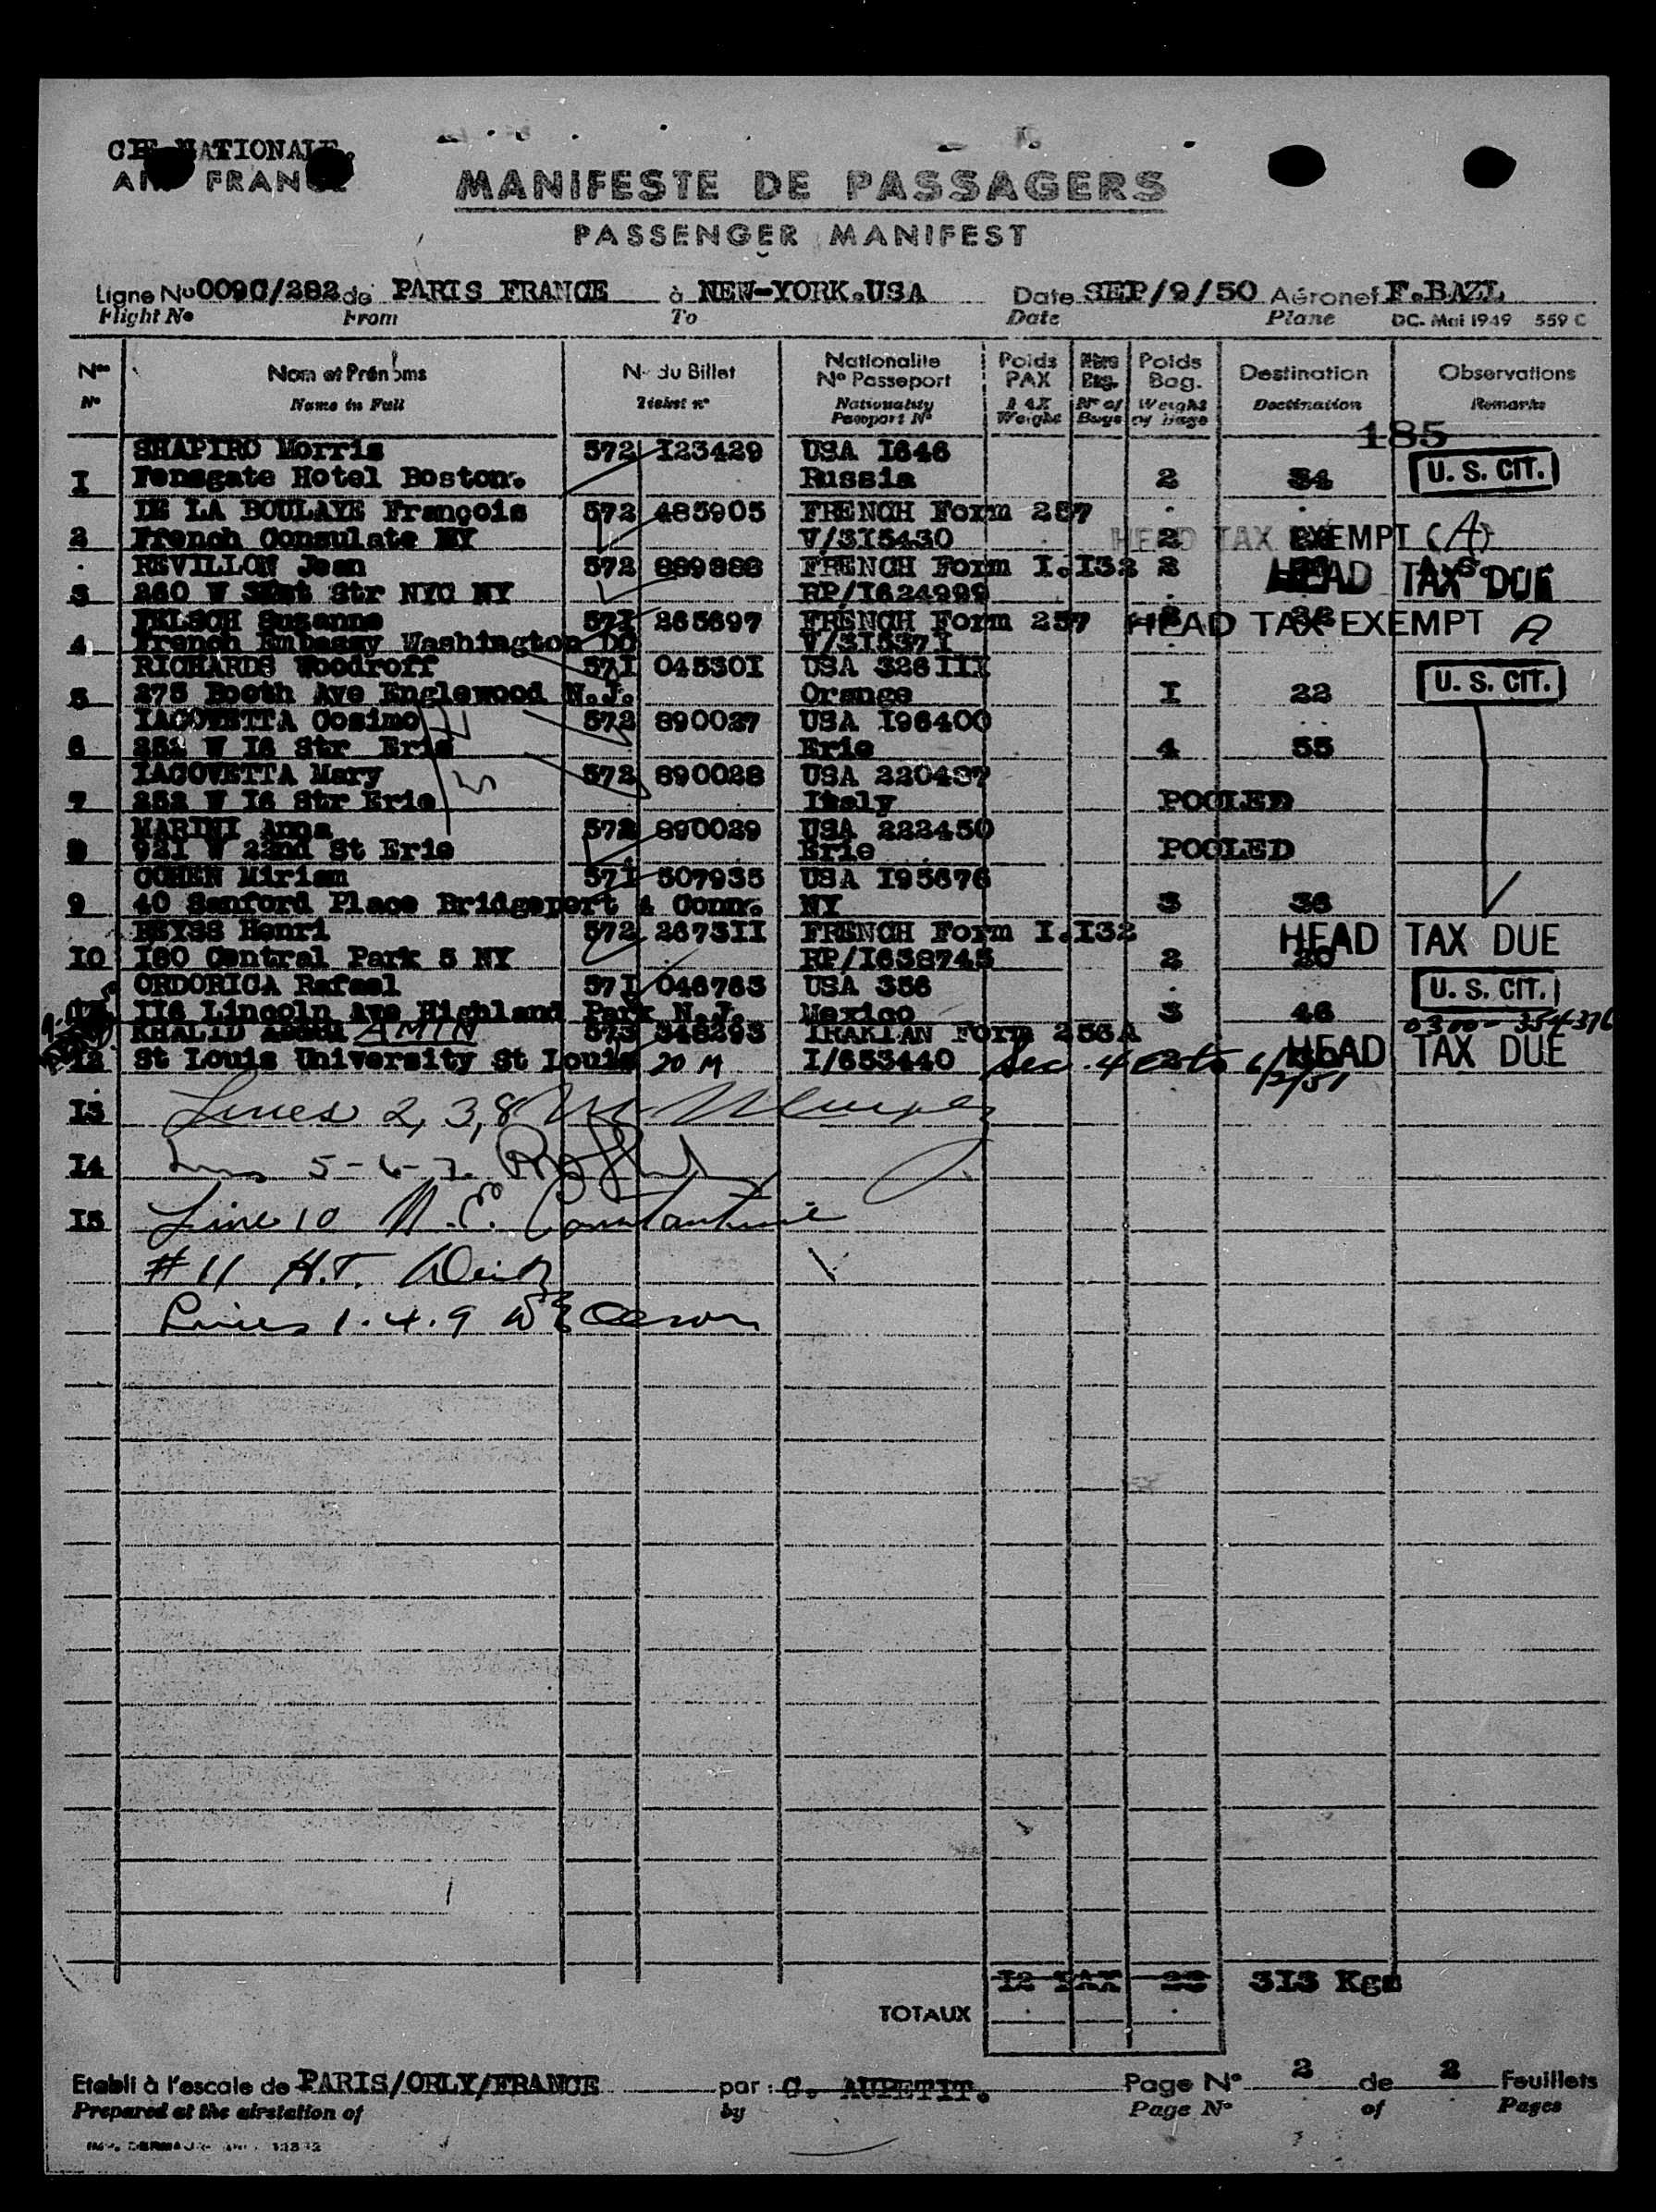 CIE NATIONALE
AIR FRANCE
MANIFESTE DE PASSAGERS
PASSENGER MANIFEST
Ligne No 009C/282 de PARIS FRANCE à NEW-YORK.USA Date SEP/9/50 Aéronef F.BAZL
Flight No From To Date Plane DC. Mai 1949 559 C
Nos Nom et Prénoms N° du Billet Nationalite Poids Nbre Poids Destination Observations
N° Passeport PAX Bag. Bag.
N° Name in Full Ticket n° Nationality PAX N° of Weight Destination Remarks
Passport N° Weight Bags of bags
185
SHAPIRO Morris 572 I23429 USA I646
I Fensgate Hotel Boston. Russia 2 34 U. S. CIT.
DE LA BOULAYE François 572 485905 FRENCH Form 257
2 French Consulate NY V/3I5430 2 HEAD TAX EXEMPT (A)
REVILLON Jean 572 889888 FRENCH Form I.I32 2
3 260 W Str NYC NY RP/I624999 HEAD TAX DUE
FELSCH Suzanne 57I 265697 FRENCH Form 257 HEAD TAX EXEMPT A
4 French Embassy Washington DC V/3I537I
RICHARDS Woodroff 57I 04530I USA 326III
5 275 Booth Ave Englewood N.J. Orange I 22 U. S. CIT.
IACOVETTA Cosimo 572 890027 USA I96400
6 252 W I6 Str Erie Erie 4 55
IACOVETTA Mary 572 890028 USA 220487
7 252 W I6 Str Erie Italy POOLED
MARINI Anna 572 890029 USA 222450
8 921 W 22nd St Erie Erie POOLED
COHEN Miriam 57I 507935 USA I95676
9 40 Sanford Place Bridgeport 4 Conn. NY 3 36
BEYSS Henri 572 2673II FRENCH Form I.I32
I0 I80 Central Park S NY RP/I638745 2 20 HEAD TAX DUE
ORDORICA Rafael 57I 046763 USA 356 U. S. CIT.
II6 Lincoln Ave Highland Park N.J. Mexico 3 46
KHALID AMIN 573 348293 IRAKIAN Form 256A 0300-354376
I2 St Louis University St Louis 20 M I/653440 Sec. 4 e to 6/2/51 HEAD TAX DUE
I3 Lines 2, 3, 8
I4 5-6-7
I5 Line 10 N.E. Constantine
#11 H.T.
Lines 1.4.9
I2 PAX 23 3I3 Kgs
TOTAUX
Etabli à l'escale de PARIS/ORLY/FRANCE par: C. AUPETIT. Page N° 2 de 2 Feuillets
Prepared at the airstation of by Page N° of Pages